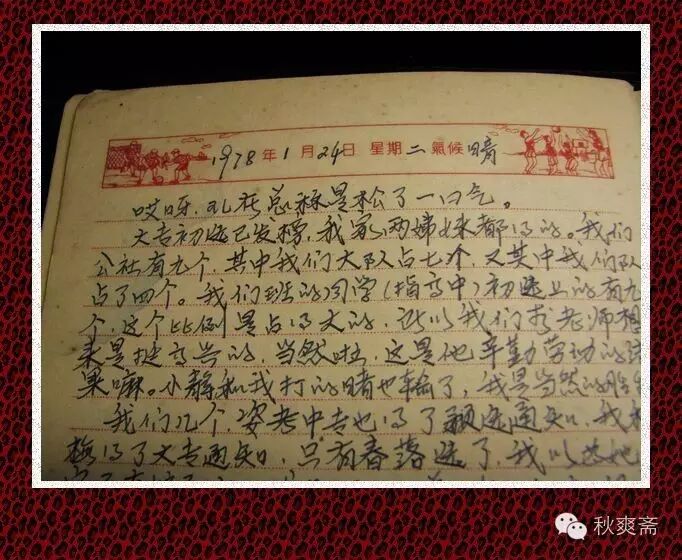 1978年1月24日 星期二 氣候 晴
哎呀，现在总算是松了一口气。
大专初选已发榜，我家两姊妹都得的。我们
公社有九个，其中我们大队占七个，又其中我们队
占了四个。我们班的同学(指高中)初选上的有九
个，这个比例是占得大的，所以我们李老师想
来是挺高兴的，当然啦，这是他辛勤劳动的结
果嘛。小静和我打的赌也输了，我是当然的胜
我们几个，姿考中专也得了预选通知，我
梅得了大专通知，只有春落选了，我以
秋爽斋